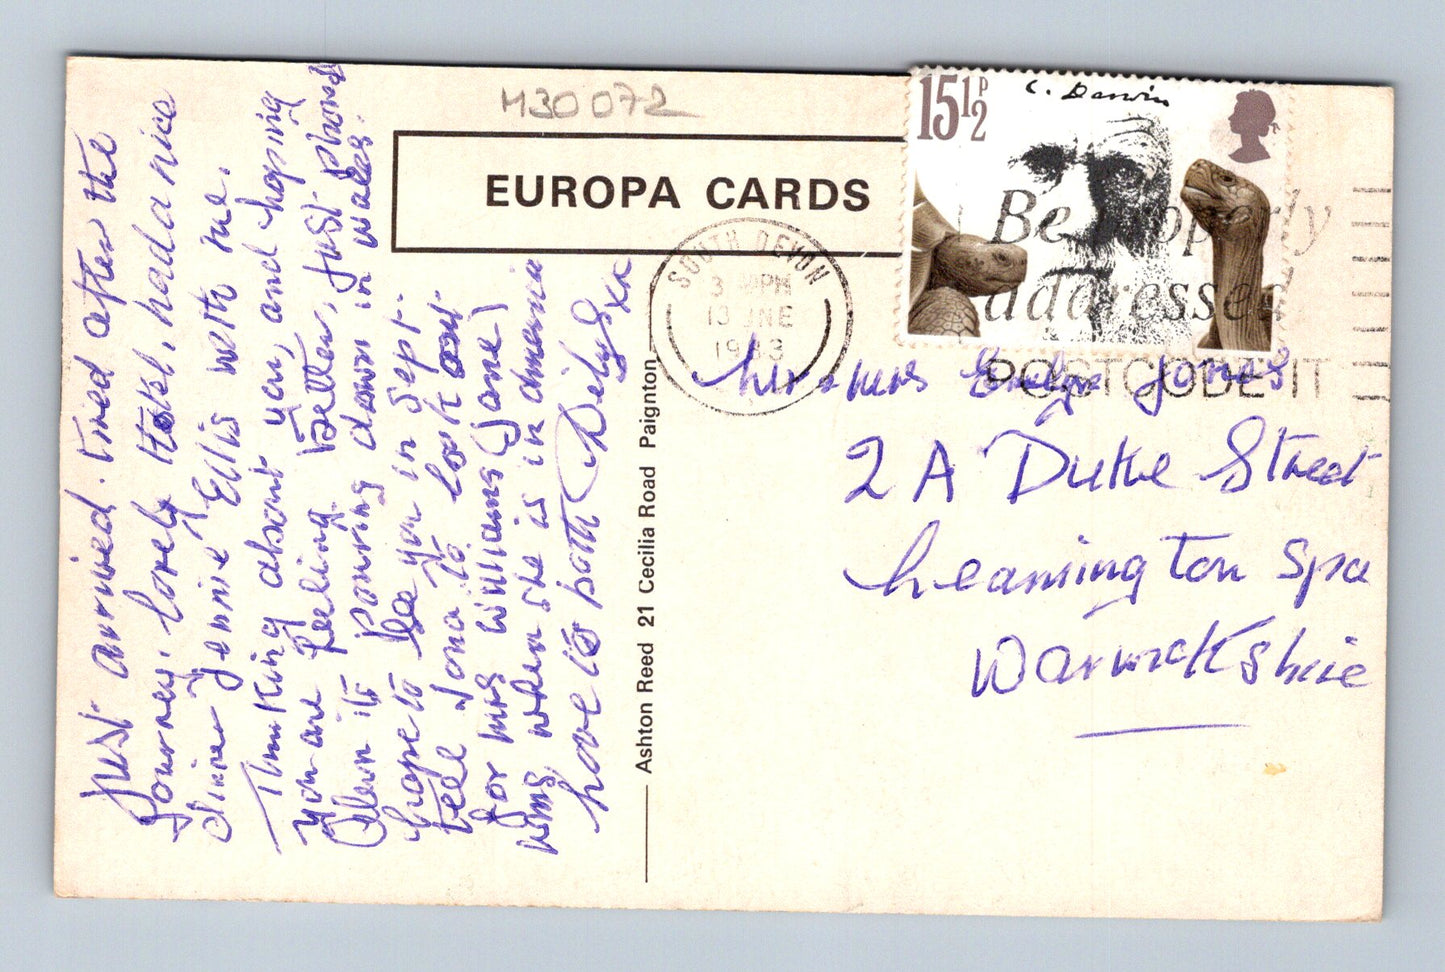 M30072
EUROPA CARDS
15½P
C. Darwin
SOUTH DEVON
3 PM
13 JNE
1983
Be properly
addressed
POSTCODE IT
Mr & Mrs Jones
2A Duke Street
Leamington Spa
Warwickshire
Ashton Reed 21 Cecilia Road Paignton
Just arrived. Tired after the
Journey. lovely Hotel, had a nice
dinner "Jennie" Ellis with me.
Thinking about you, and hoping
you are feeling better, Just phoned
it Pouring down in Wales.
hope to see you in Sept.
Tell Iona to look out
for Mrs Williams (Jane)
when she is in America
Love to both Dilys xx